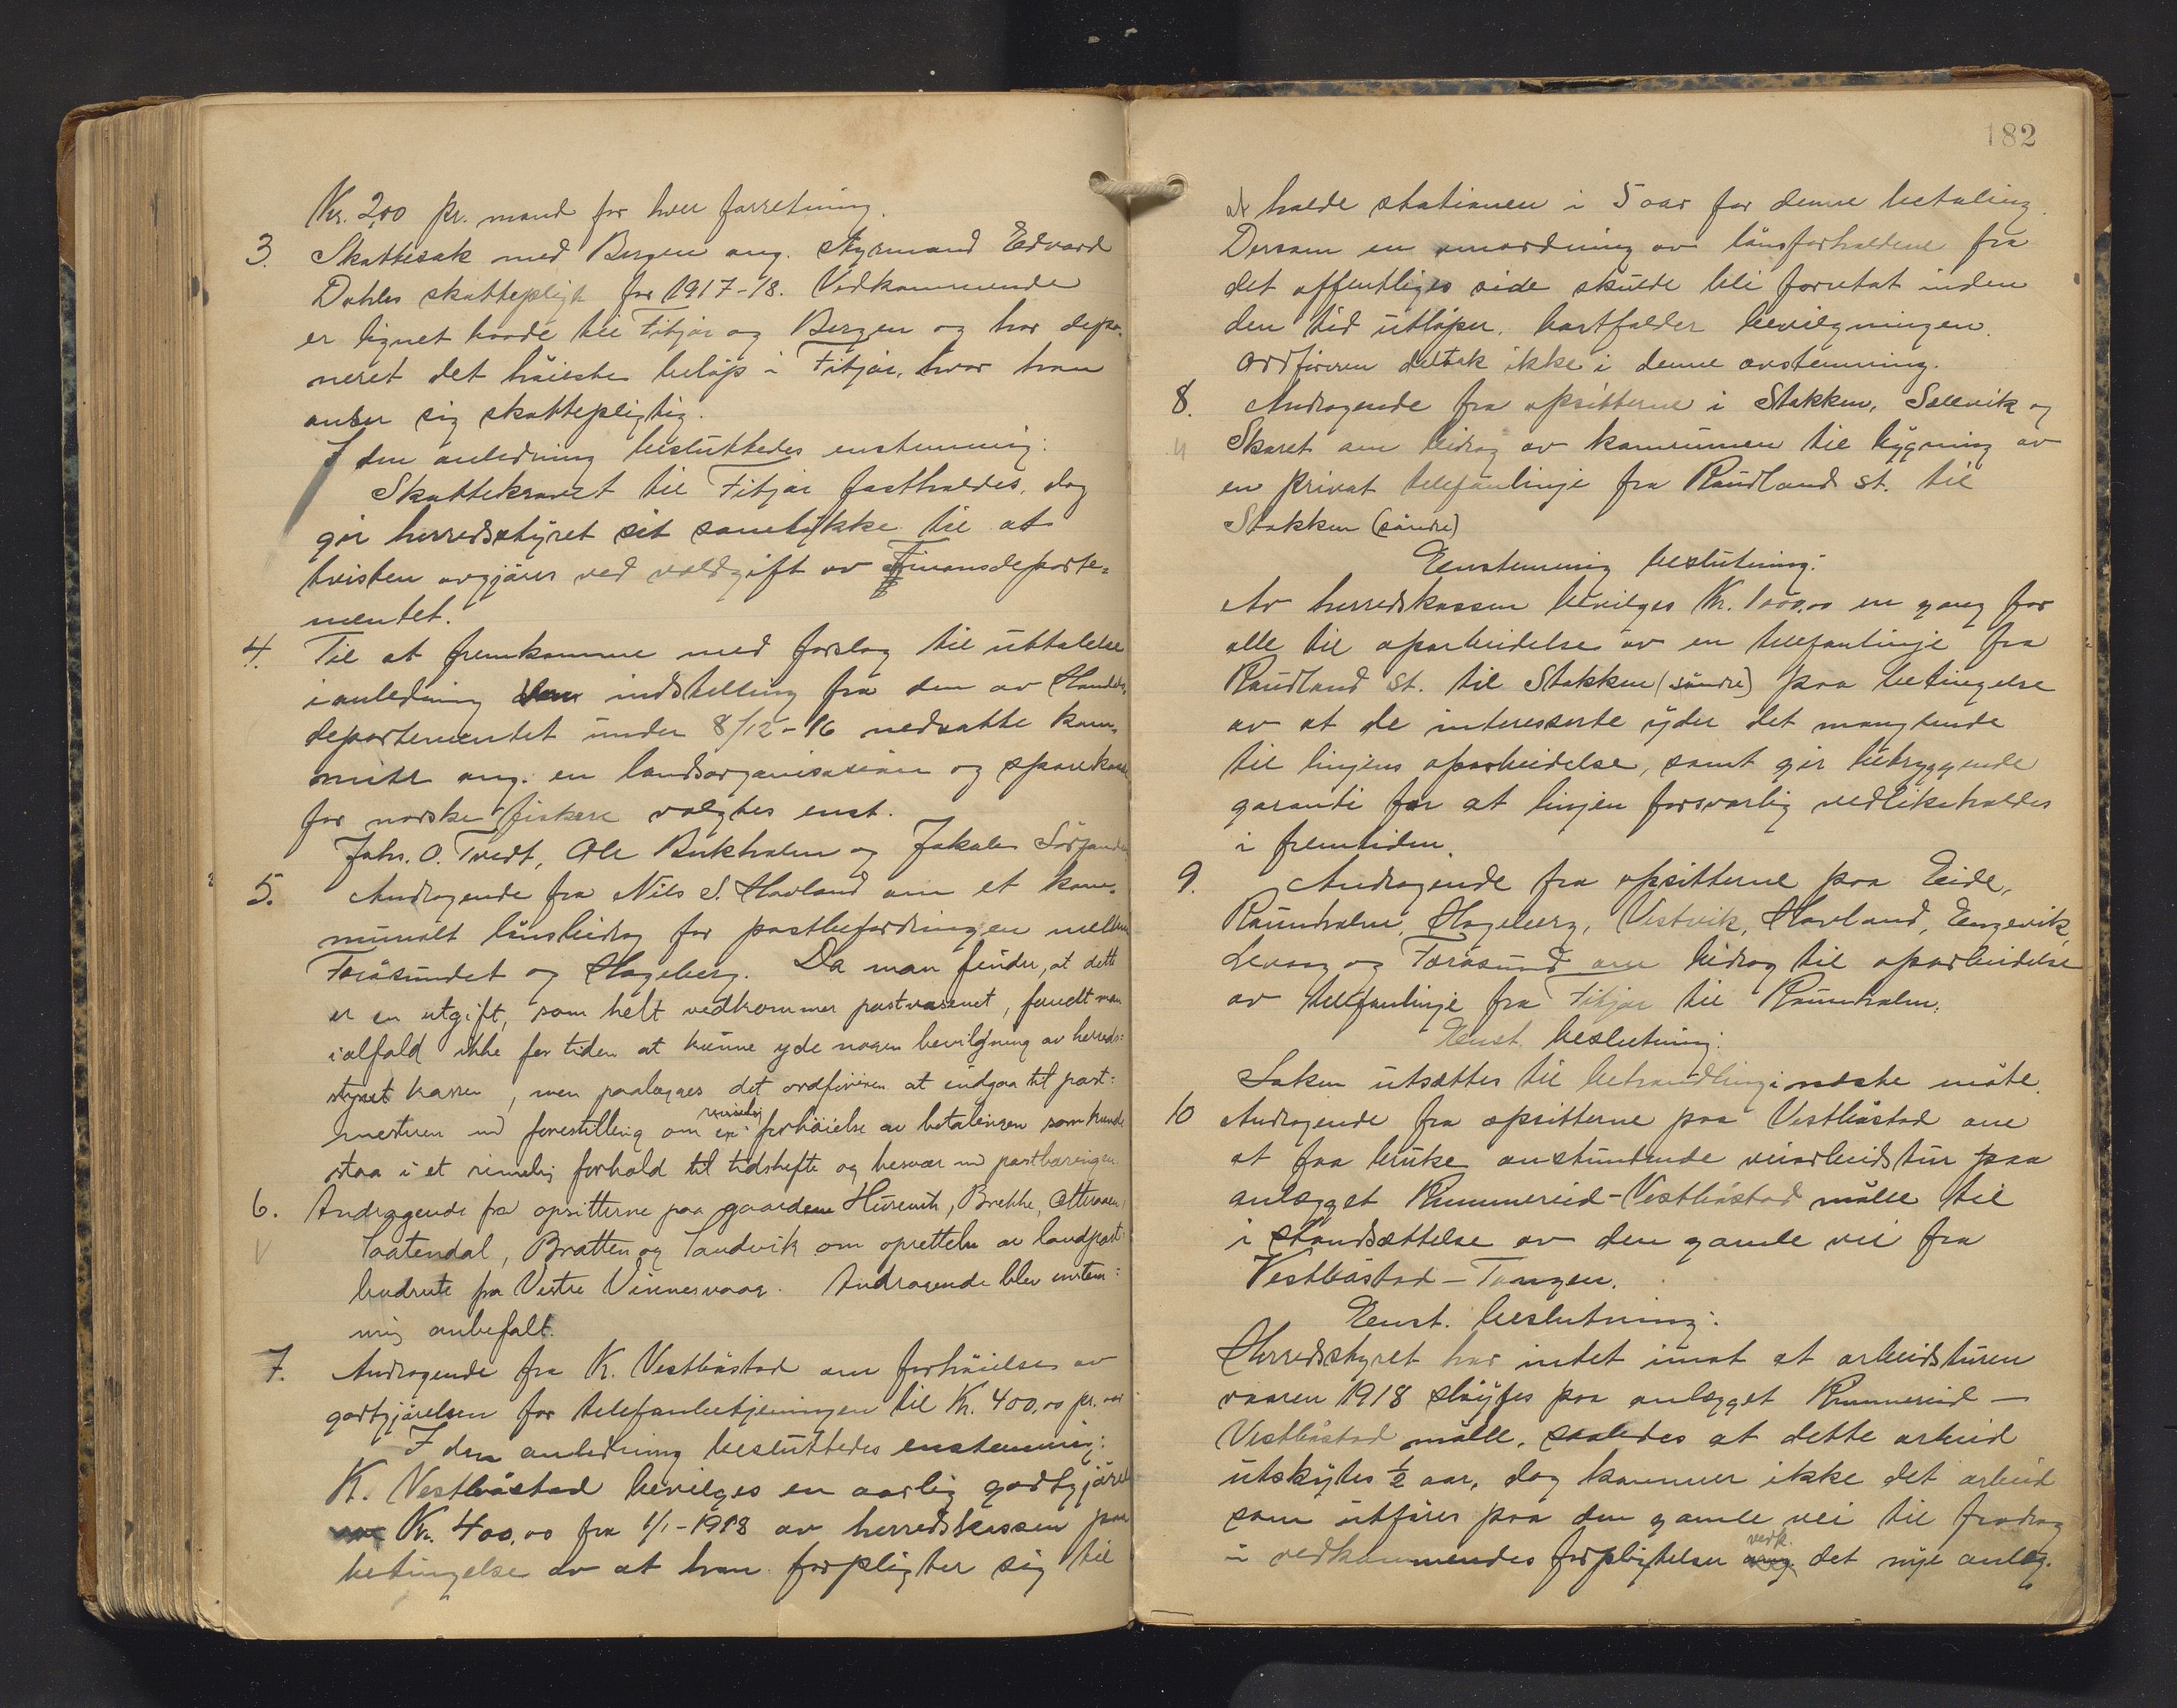 Kr. 2,00 pr. mand for hver forretning.
3. Skattesak med Bergen ang. styrmand Edvard
Dahles skattepligt for 1917-18. Vedkommende
er lignet baade til Fitjar og Bergen og har depo-
neret det høieste beløp i Fitjar, hvor han
anser sig skattepligtig.
I den anledning besluttedes enstemmig:
Skattekravet til Fitjar fastholdes, dog
gir herredsstyret sit samtykke til at
tvisten avgjøres ved voldgift av Finansdeparte-
mentet.
4. Til at fremkomme med forslag til uttalelse
i anledning indstilling fra den av Handels-
departementet under 8/12-16 nedsatte kom-
mite ang. en landsorganisasion og sparekasse
for norske fiskere valgtes enst.
Johs. O. Tvedt, Ole Bukholm og Jakob Sørfonden
5. Andragende fra Nils S. Hovland om et kom-
munalt lønsbidrag for postbefordringen mellem
Foråsundet og Hageberg. Da man finder, at dette
er en utgift, som helt vedkommer postvæsenet, fandt man
ialfald ikke for tiden at kunne yde nogen bevilgning av herreds-
styret kassen, men paalægges det ordføreren at indgaa til post-
mesteren med forestilling om en rimelig forhøielse av betalingen som kunde
staa i et rimelig forhold til tidshefte og besvær med postbæringen.
6. Andragende fra opsitterne paa gaardene Husevik, Brekke, Otteraaen,
V Taatendal, Bratten og Sandvik om oprettelse av landpost-
budrute fra Vestre Vinnesvaag. Andragende blev enstem-
mig anbefalt.
7. Andragende fra K. Vestbøstad om forhøielse av
godtgjørelsen for telefonbetjeningen til Kr. 400,00 pr. aar
I den anledning besluttedes enstemmig:
K. Vestbøstad bevilges en aarlig godtgjørel
Kr. 400,00 fra 1/1-1918 av herredskassen paa
betingelse av at han forpligter sig til
182
at holde stationen i 5 aar for denne betaling.
Dersom en omordning av lønsforholdene fra
det offentliges side skulde bli foretat inden
den tid utløper, bortfalder bevilgningen.
Ordføreren deltok ikke i denne avstemning.
8. Andragende fra opsitterne i Stokken, Sælevik og
Skaret om bidrag av kommunen til bygning av
en privat telefonlinje fra Raudland st. til
Stokken (søndre)
Eenstemmig beslutning:
Av herredskassen bevilges Kr. 1000,00 en gang for
alle til oparbeidelse av en telefonlinje fra
Raudland st. til Stokken (søndre) paa betingelse
av at de interesserte yder det manglende
til linjens oparbeidelse, samt gir betryggende
garanti for at linjen forsvarlig vedlikeholdes
i fremtiden.
9. Andragende fra opsitterne paa Eide,
Raunholm, Hageberg, Vestvik, Hovland, Engevik,
Levaag og Foråsund om bidrag til oparbeidelse
av telefonlinje fra Fitjar til Raunholm.
Enst. beslutning:
Saken utsættes til behandling i næste møte.
10 Andragende fra opsitterne paa Vestbøstad om
at faa bruke anstundende veiarbeidstur paa
anlægget Rimmereid-Vestbøstad mølle til
i standsættelse av den gamle vei fra
Vestbøstad-Tangen.
Enst. beslutning:
Herredsstyret har intet imot at arbeidsturen
vaaren 1918 sløifes paa anlægget Rimmereid -
Vestbøstad mølle, saaledes at dette arbeid
utskytes ½ aar, dog kommer ikke det arbeid
som utføres paa den gamle vei til fradrag
i vedkommendes forpligtelser vedk. det nye anlæg.